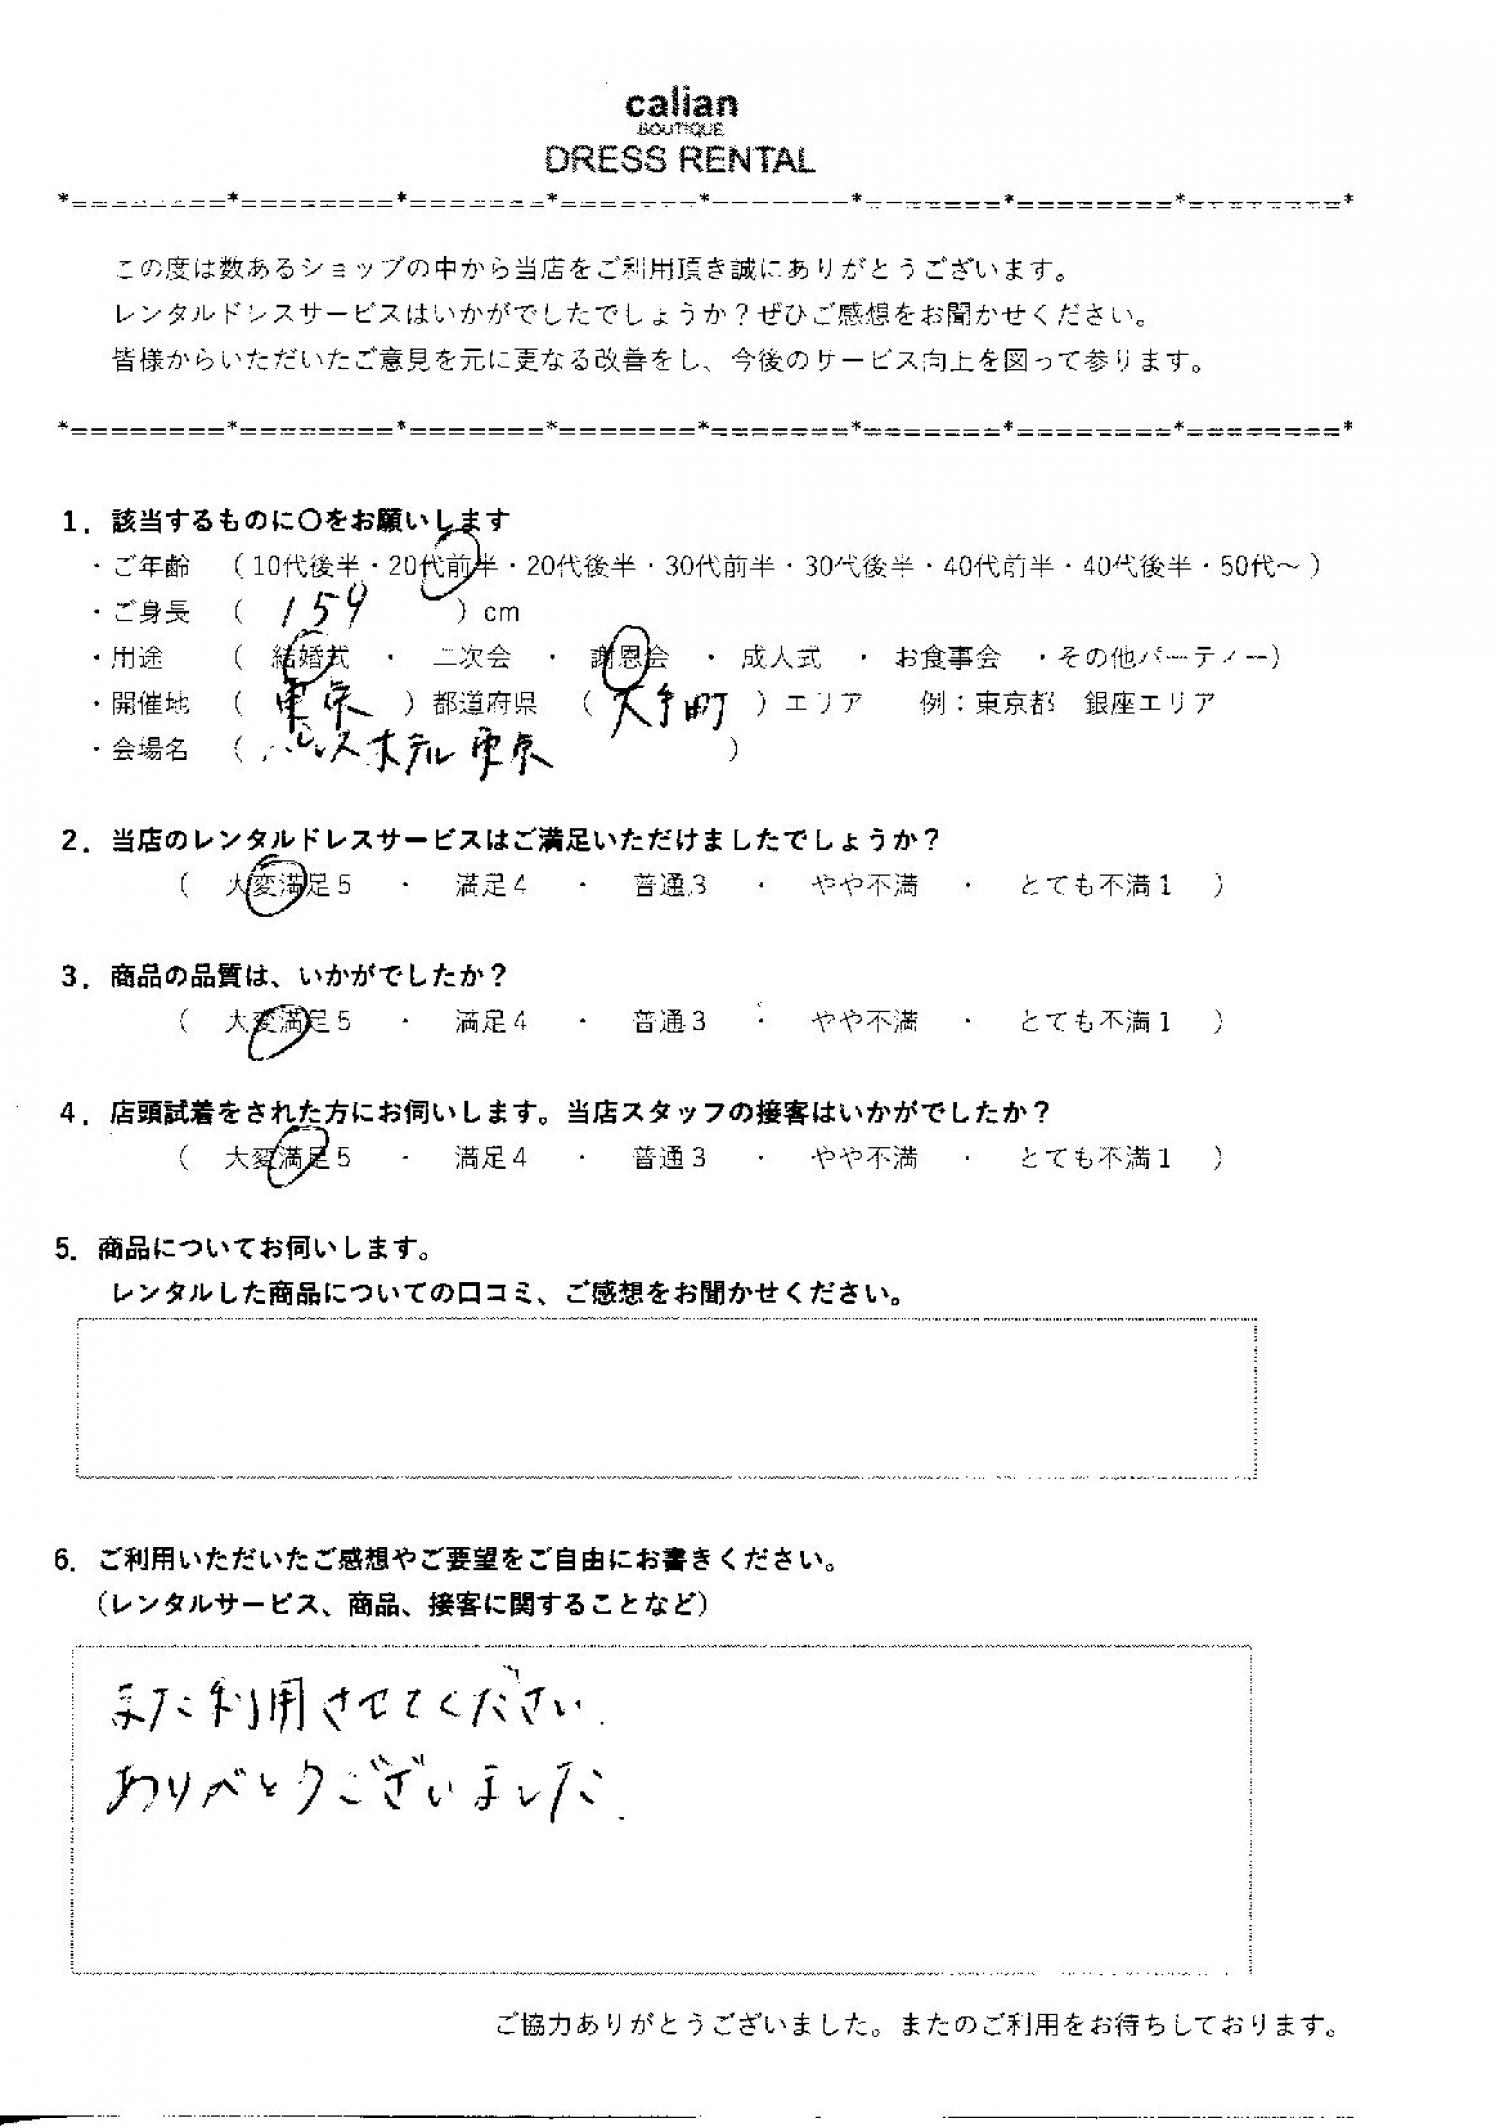 calian
BOUTIQUE
DRESS RENTAL
*========*========*=======*=======*=======*=======*========*========*
この度は数あるショップの中から当店をご利用頂き誠にありがとうございます。
レンタルドレスサービスはいかがでしたでしょうか？ぜひご感想をお聞かせください。
皆様からいただいたご意見を元に更なる改善をし、今後のサービス向上を図って参ります。
*========*========*=======*=======*=======*=======*========*========*
1．該当するものに〇をお願いします
・ご年齢 （10代後半・20代前半・20代後半・30代前半・30代後半・40代前半・40代後半・50代～）
・ご身長 （ 159 ）cm
・用途 （ 結婚式 ・ 二次会 ・ 謝恩会 ・ 成人式 ・ お食事会 ・その他パーティー）
・開催地 （ 東京 ）都道府県 （ 大手町 ）エリア 例：東京都 銀座エリア
・会場名 （ パレスホテル東京 ）
2．当店のレンタルドレスサービスはご満足いただけましたでしょうか？
（ 大変満足5 ・ 満足4 ・ 普通3 ・ やや不満 ・ とても不満1 ）
3．商品の品質は、いかがでしたか？
（ 大変満足5 ・ 満足4 ・ 普通3 ・ やや不満 ・ とても不満1 ）
4．店頭試着をされた方にお伺いします。当店スタッフの接客はいかがでしたか？
（ 大変満足5 ・ 満足4 ・ 普通3 ・ やや不満 ・ とても不満1 ）
5．商品についてお伺いします。
レンタルした商品についての口コミ、ご感想をお聞かせください。
6．ご利用いただいたご感想やご要望をご自由にお書きください。
（レンタルサービス、商品、接客に関することなど）
また利用させてください.
ありがとうございました.
ご協力ありがとうございました。またのご利用をお待ちしております。